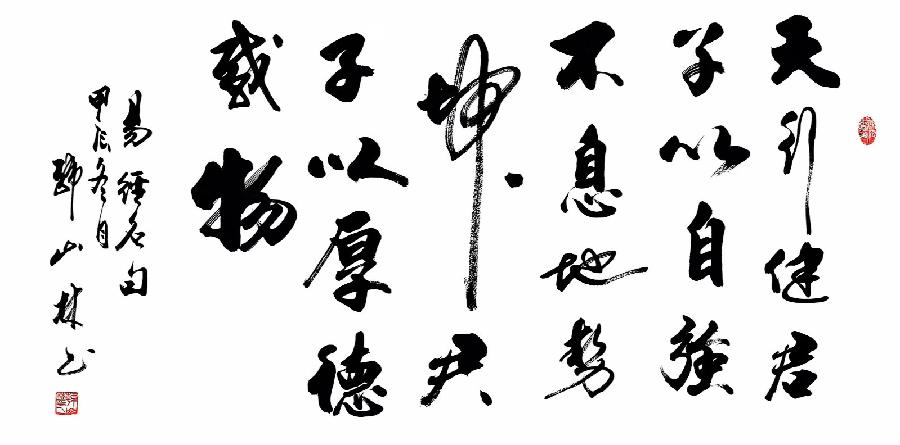 天行健君
子以自強
不息地勢
坤君
子以厚德
載物
易經名句
甲辰冬月
山林书